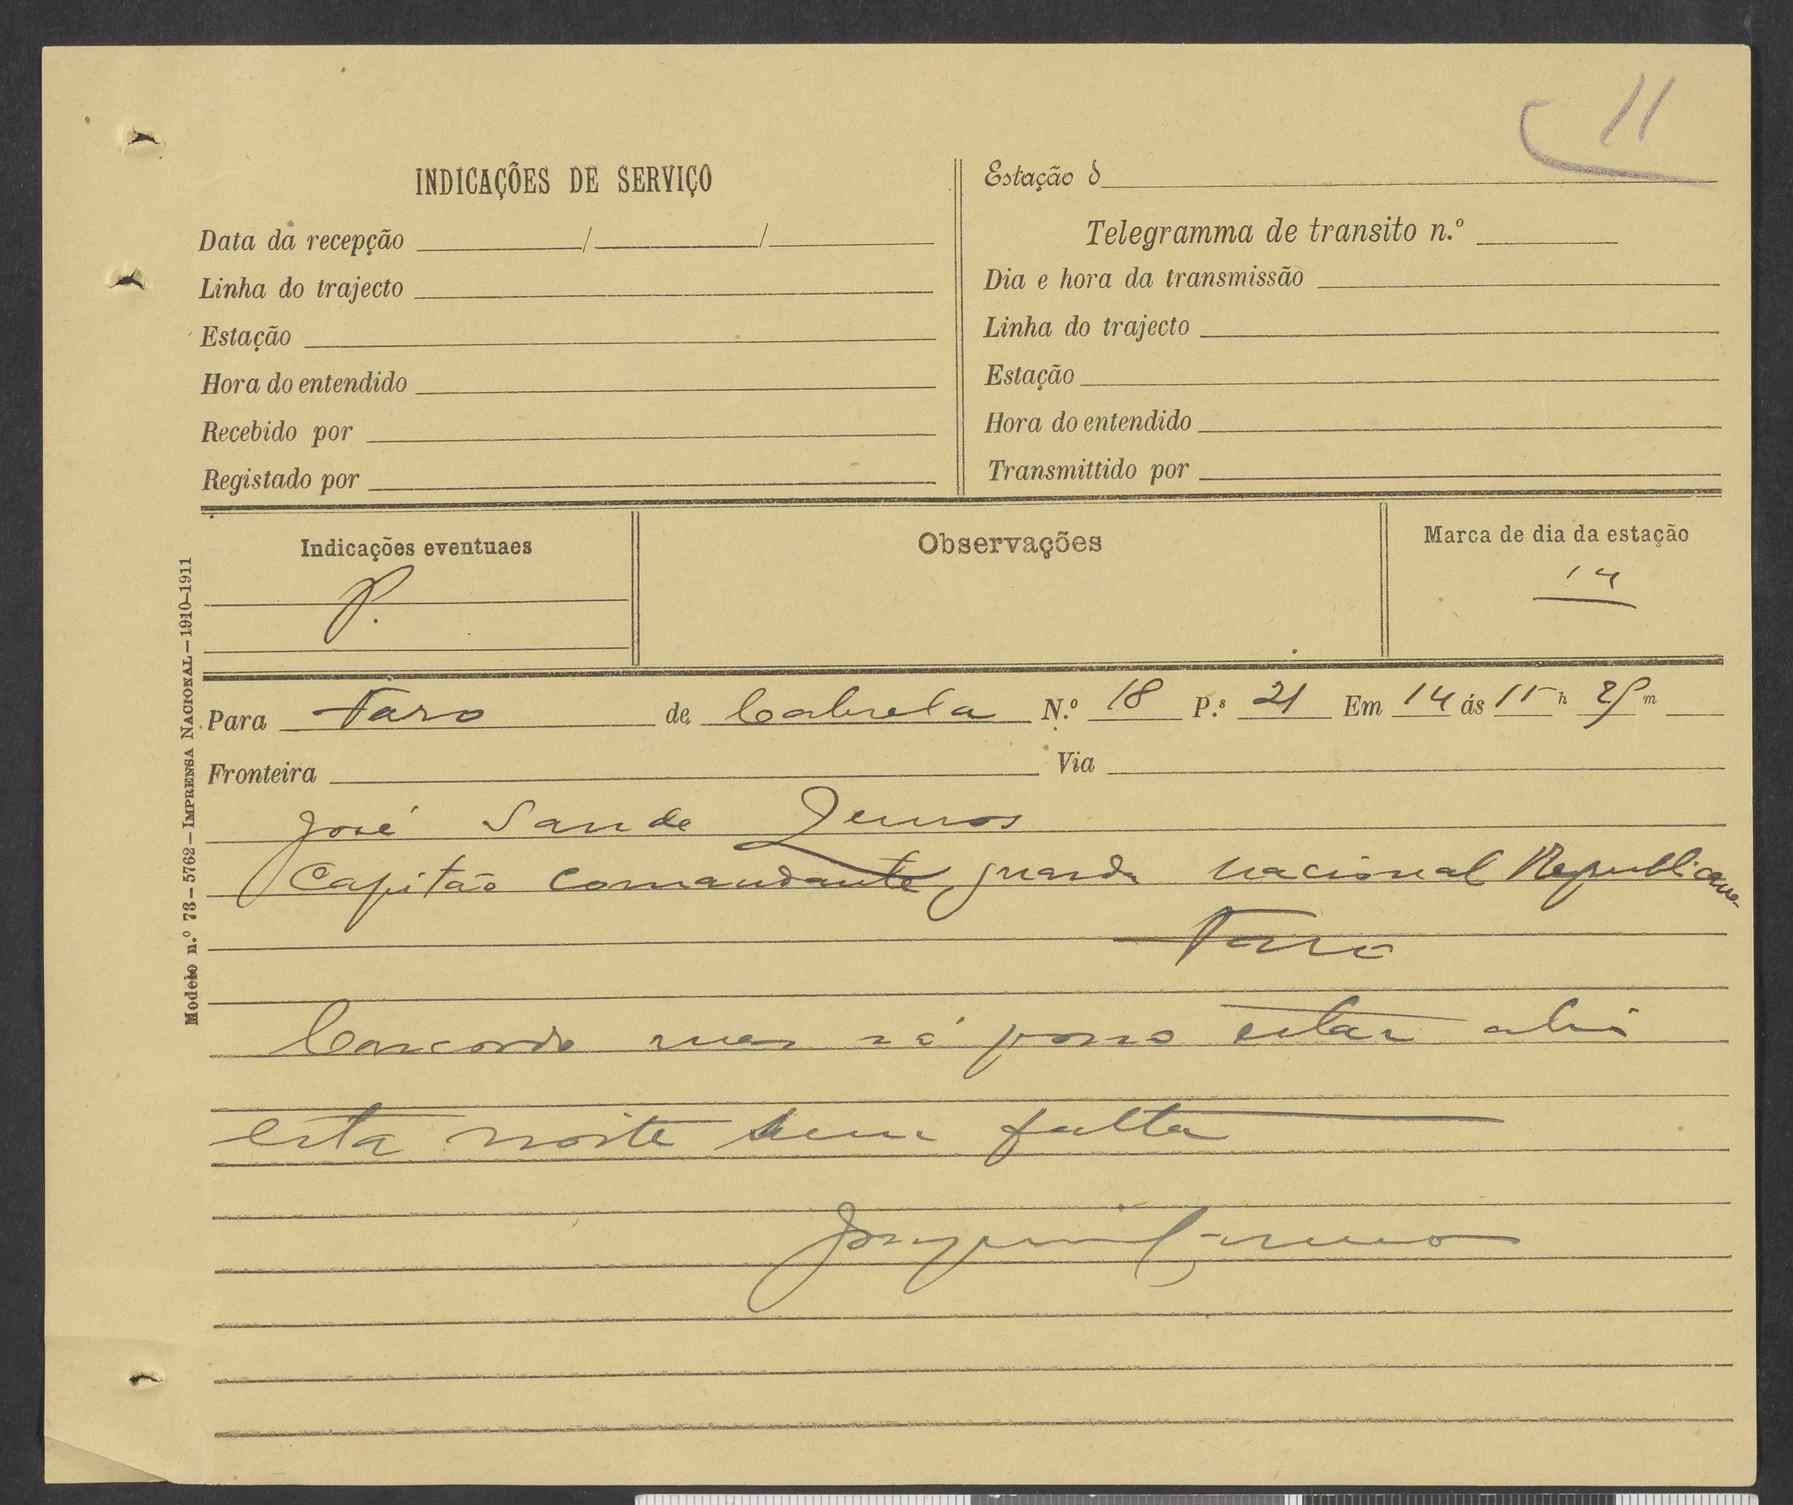 11
INDICAÇÕES DE SERVIÇO
Data da recepção / /
Linha do trajecto
Estação
Hora do entendido
Recebido por
Registado por
Estação d
Telegramma de transito n.º
Dia e hora da transmissão
Linha do trajecto
Estação
Hora do entendido
Transmittido por
Indicações eventuaes
P.
Observações
Marca de dia da estação
14
Modelo n.º 73—5762—IMPRENSA NACIONAL—1910-1911
Para Faro de N.º 18 P.s 21 Em 14 ás 15 h 25 m
Fronteira Via
José Sande Lemos
Capitão Comandante guarda nacional Republicana
Faro
Concordo mas só posso estar ahi
esta noite sem falta